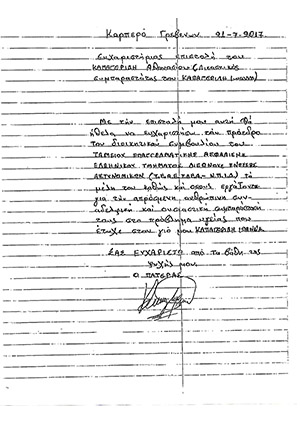 Καρπερό Γρεβενών 21-7-2017
Ευχαριστήριος επιστολή του
ΚΑΠΑΓΕΡΙΔΗ Αθανασίου (Δικαστικός
συμπαραστάτης του ΚΑΠΑΓΕΡΙΔΗ Ιωάννη)
Με την επιστολή μου αυτή θα
ήθελα να ευχαριστήσω τον πρόεδρο
του διοικητικού συμβουλίου του
ΤΑΜΕΙΟΥ ΕΠΑΓΓΕΛΜΑΤΙΚΗΣ ΑΣΦΑΛΙΣΗΣ
ΕΛΛΗΝΙΚΟΥ ΤΜΗΜΑΤΟΣ ΔΙΕΘΝΟΥΣ ΕΝΩΣΕΩΣ
ΑΣΤΥΝΟΜΙΚΩΝ (Τ.Ε.Α.Ε.Τ.Δ.Ε.Α.-Ν.Π.Ι.Δ) τα
μέλη του καθώς και όσους εργάζονται
για την απέραντη ανθρώπινη συν-
αδελφική και ουσιαστική συμπαράστασή
τους στο πρόβλημα υγείας που
έτυχε στον γιό μου ΚΑΠΑΓΕΡΙΔΗ ΙΩΑΝΝΗ.
ΣΑΣ ΕΥΧΑΡΙΣΤΩ από τα βάθη της
ψυχής μου
Ο ΠΑΤΕΡΑΣ